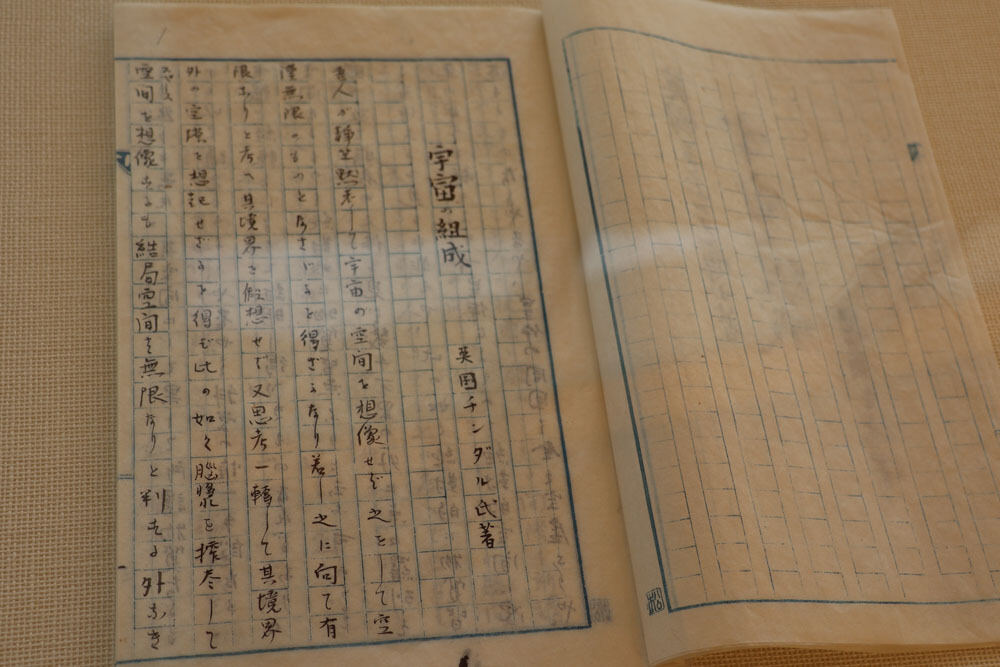 宇宙の組成
英国チンダル氏著
吾人が静坐黙考して宇宙の空間を想像せば之をして空
漠無限のものとなさざるを得ざるなり若し之に向て有
限なりと考へ其境界を仮想せば又思考一轉して其境界
外の空漠を想起せざるを得ず此の如く脳漿を搾尽して
空間を想像するも結局空間を無限なりと判する外なき
1